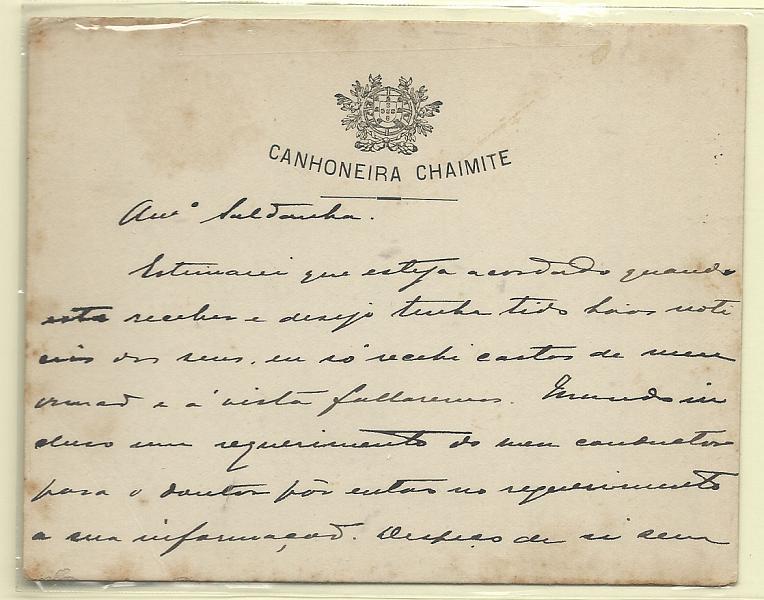 CANHONEIRA CHAIMITE
Amº Saldanha.
Estimarei que esteja acordado quando
esta receber e desejo tenha tido boas noti
cias dos seus, eu só recebi cartas de meu
irmão e á vista fallaremos. Mando in
cluso um requerimento do meu conductor
para o doutor pôr entao no requerimento
a sua informação. Despeço de si sem